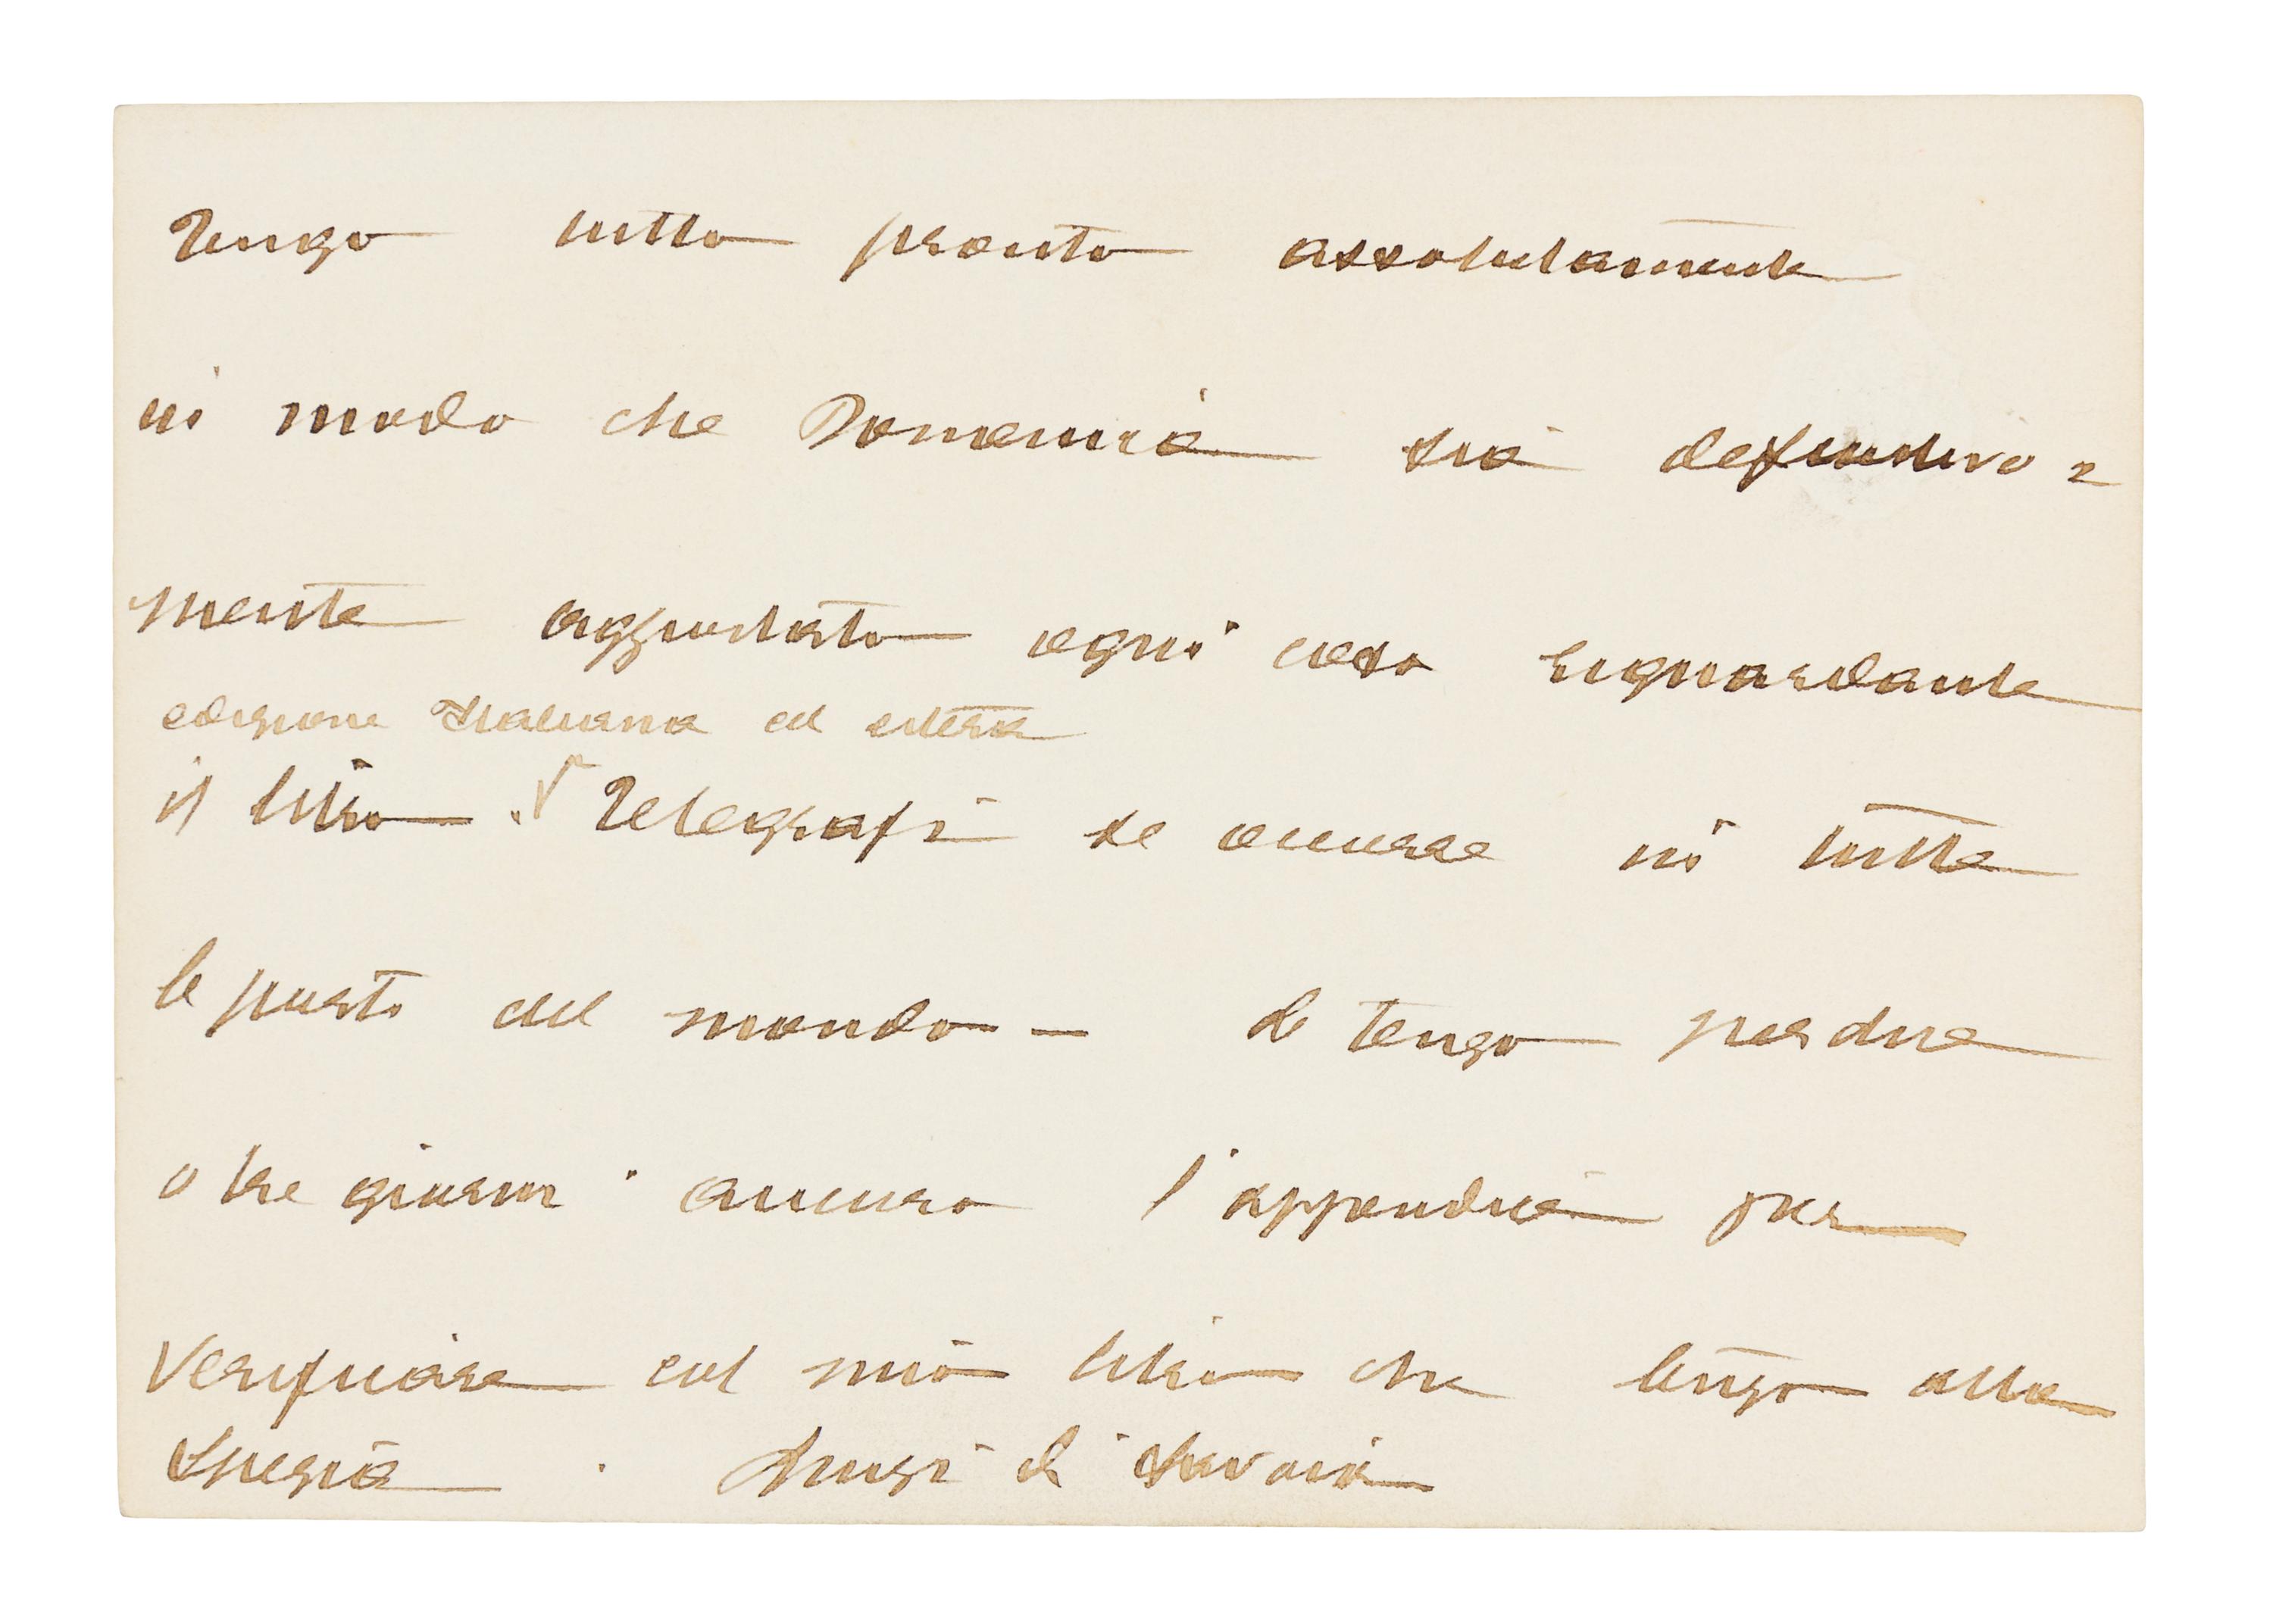 Tengo tutto pronto assolutamente
in modo che Domenica sia definitiva=
mente aggiustato ogni cosa riguardante
edizione Italiana ed estera
il libro. √ Telegrafi se occorre in tutte
le parti del mondo — Le tengo per due
o tre giorni ancora l'appendice per
Verificare col mio libro che tengo alla
Spezia. Luigi di Savoia